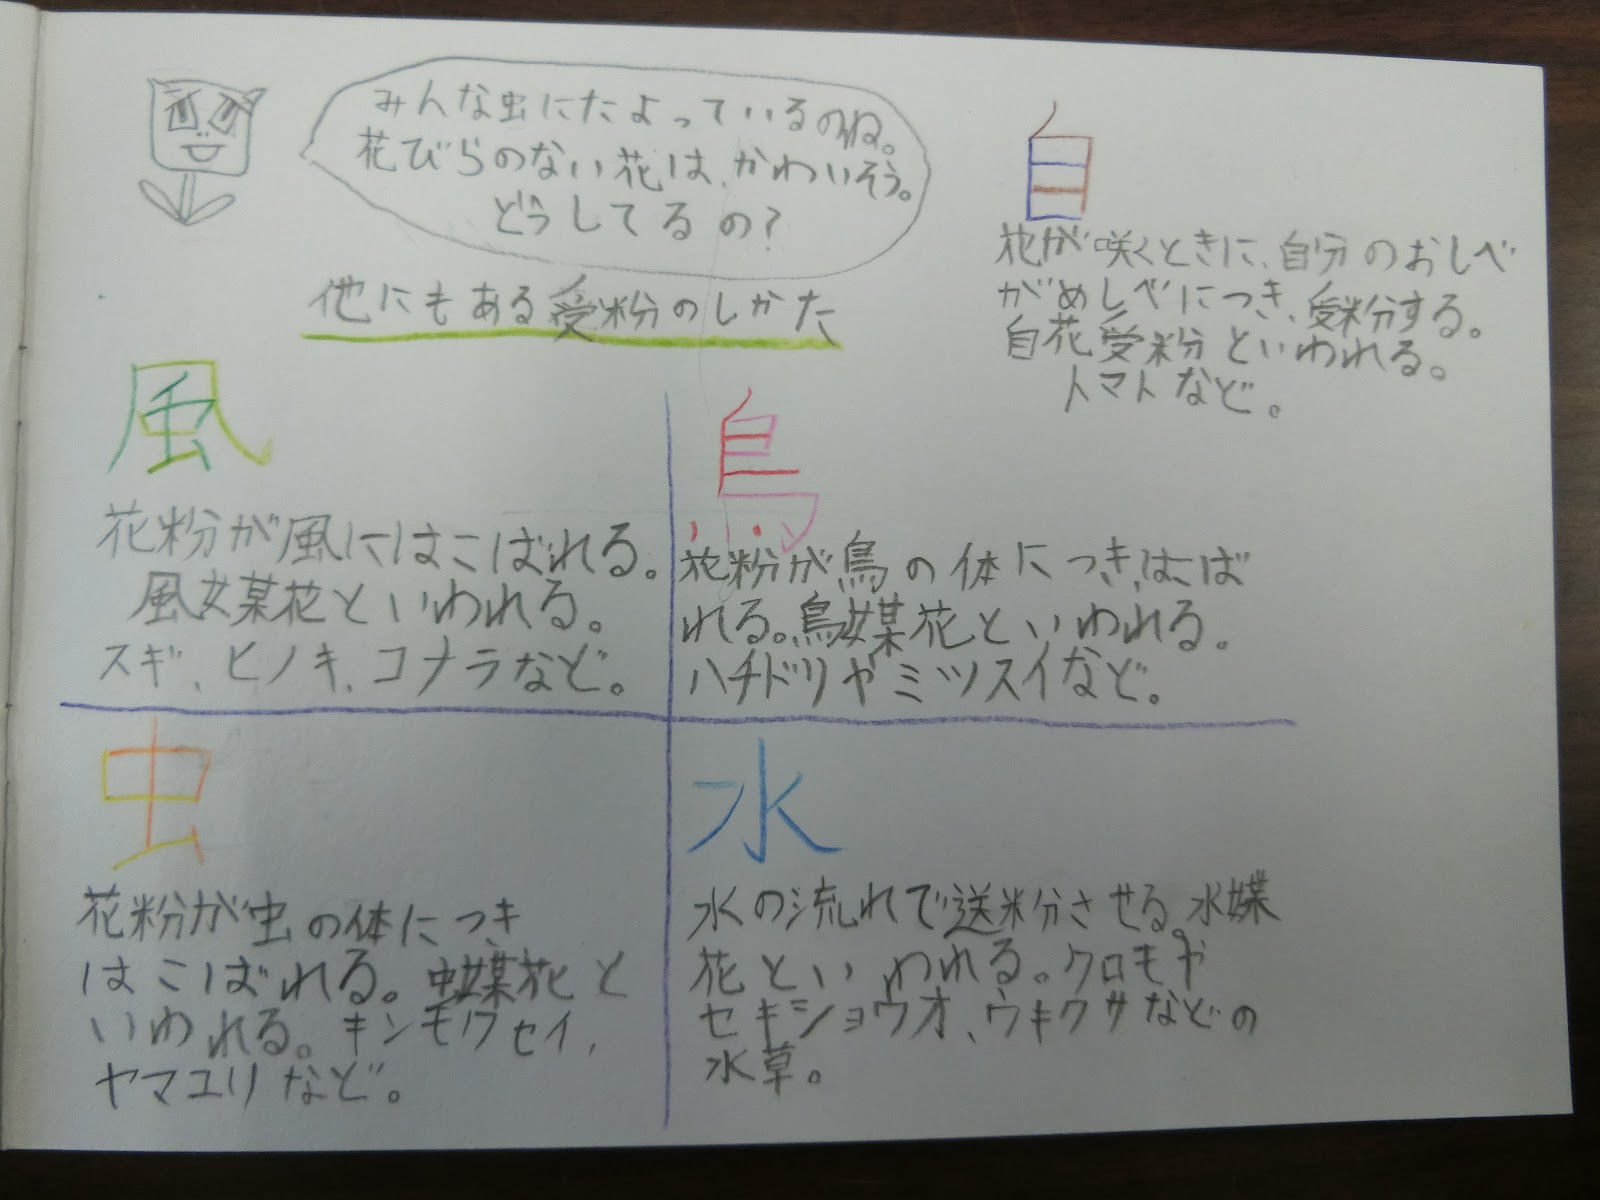 みんな虫にたよっているのね。
花びらのない花は、かわいそう。
どうしてるの?
他にもある受粉のしかた
自
花が咲くときに、自分のおしべ
がめしべにつき、受粉する。
自花受粉といわれる。
トマトなど。
風
花粉が風にはこばれる。
風媒花といわれる。
スギ、ヒノキ、コナラなど。
鳥
花粉が鳥の体につき、はこば
れる。鳥媒花といわれる。
ハチドリやミツスイなど。
虫
花粉が虫の体につき
はこばれる。虫媒花と
いわれる。キンモクセイ、
ヤマユリなど。
水
水の流れで送粉させる。水媒
花といわれる。クロモや
セキショウオ、ウキクサなどの
水草。